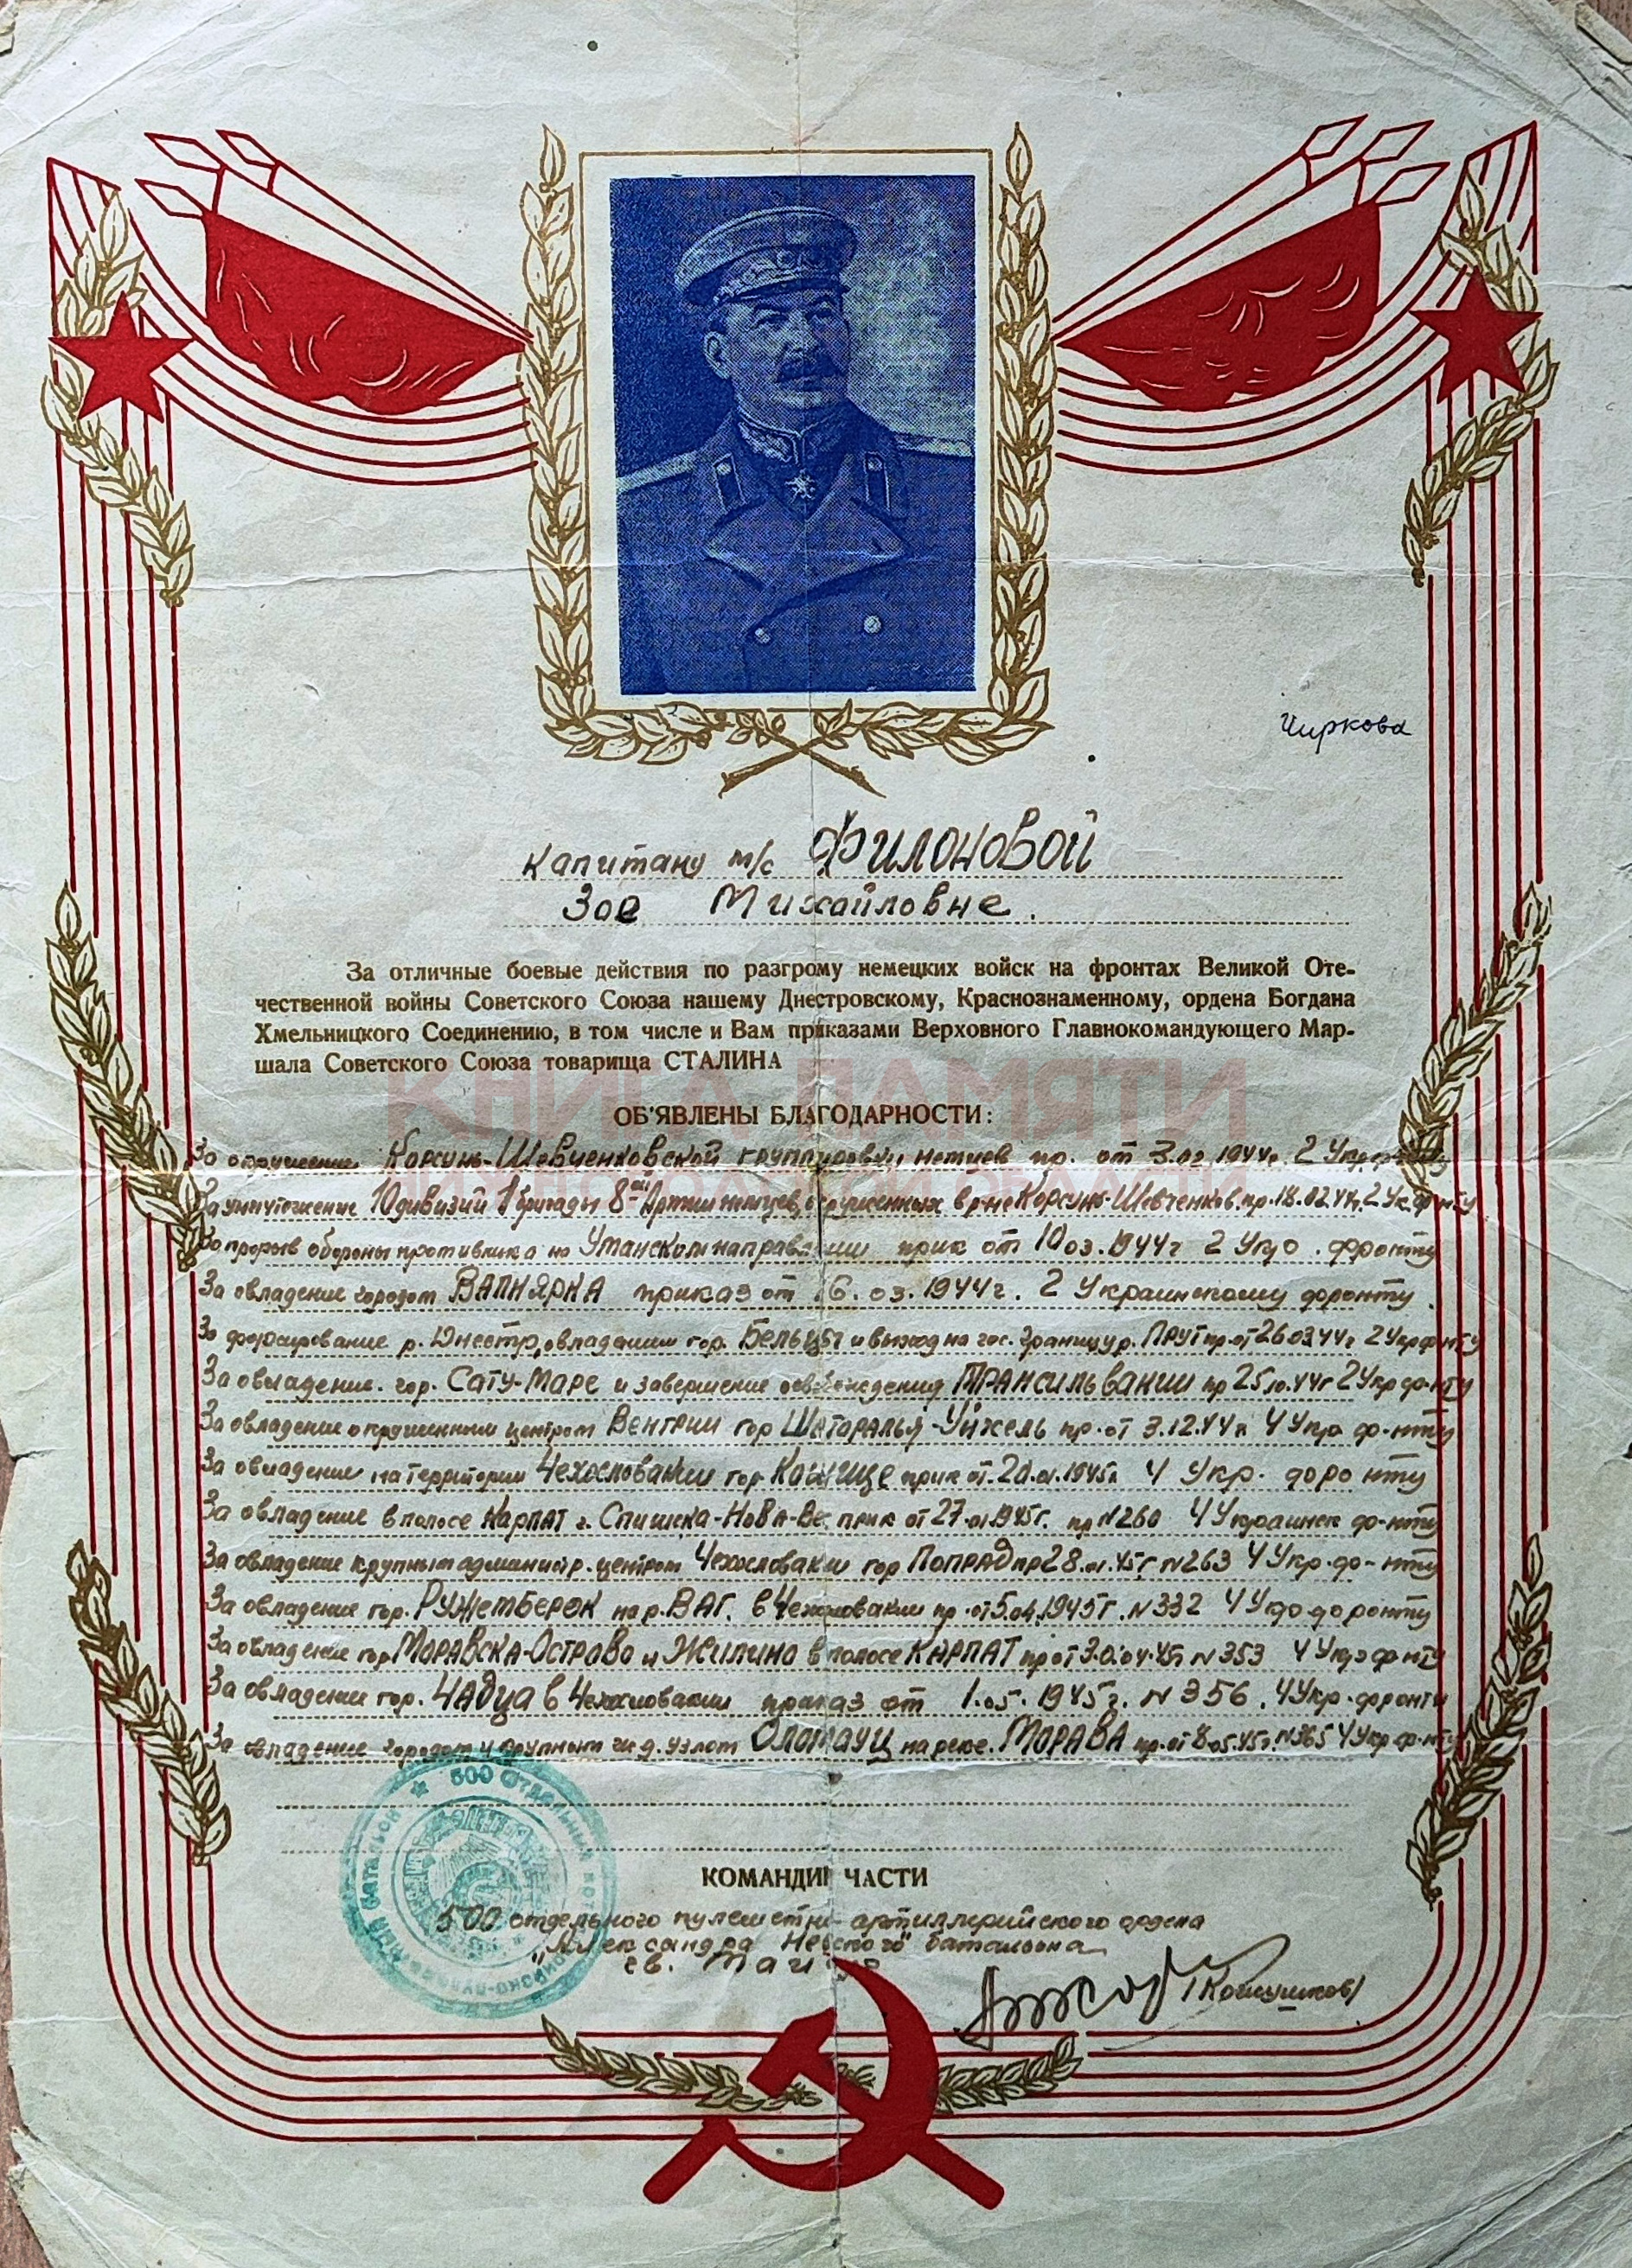 Чиркова
Капитану м/с Филоновой
Зое Михайловне.
За отличные боевые действия по разгрому немецких войск на фронтах Великой Оте-
чественной войны Советского Союза нашему Днестровскому, Краснознаменному, ордена Богдана
Хмельницкого Соединению, в том числе и Вам приказами Верховного Главнокомандующего Мар-
шала Советского Союза товарища СТАЛИНА
КНИГА ПАМЯТИ
ОБ'ЯВЛЕНЫ БЛАГОДАРНОСТИ:
За окружение Корсунь-Шевченковской группировки немцев пр. от 3.02.1944г. 2 Укр.
НИЖЕГОРОДСКОЙ ОБЛАСТИ
За уничтожение 10 дивизий 1 бригады 8-ой Армии немцев, окруженных в р-не Корсунь-Шевченков. пр. 18.02.44г. 2 Ук. фронту
За прорыв обороны противника на Уманском направлении прик от 10.03.1944г 2 Укр. фронту
За овладение городом ВАПНЯРКА приказ от 16.03.1944г. 2 Украинскому фронту.
За форсирование р. Днестр, овладении гор. Бельцы и выход на гос. границу р. ПРУТ пр. от 26.03.44г 2 Укр ф-нту
За овладение. гор. Сату-Маре и завершение освобождения ТРАНСИЛЬВАНИИ пр 25.10.44г 2 Укр ф-нту
За овладение окруженным центром Венгрии гор Шаторалья-Уйхель пр. от 3.12.44г 4 Укр ф-нту
За овладение на территории Чехословакии гор. прик от. 20.01.1945г. 4 Укр. фронту
За овладение в полосе КАРПАТ г. Спишска-Нова-Ве. прик от 27.01.1945г. пр N260 4 Украинск ф-нту
За овладение крупным администр. центром Чехословакии гор ПОПРАД пр 28.01.45г N263 4 Укр. ф-нту
За овладение гор. Ружемберок на р. ВАГ. в Чехословакии пр. от 5.04.1945г. N332 4 Укр фронту
За овладение гор МОРАВСКА-ОСТРАВА и Жилина в полосе КАРПАТ пр от 30.04.45г N353 4 Укр ф-нту
За овладение гор. ЧАДЦА в Чехословакии приказ от 1.05.1945г. N356. 4 Укр. фронту
За овладение городом и крупным ж.д. узлом Оломауц на реке. МОРАВА пр. от 8.05.45г. N365 4 Укр ф-нту
500 Отдельный
батальон
КОМАНДИР ЧАСТИ
500 отдельного пулеметно-артиллерийского ордена
"Александра Невского" батальона
гв. Майор
/Кошушков/